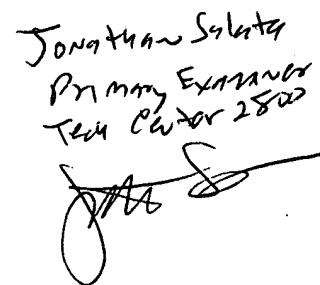 Jonathan Salata
Primary Examiner
Tech Center 2800